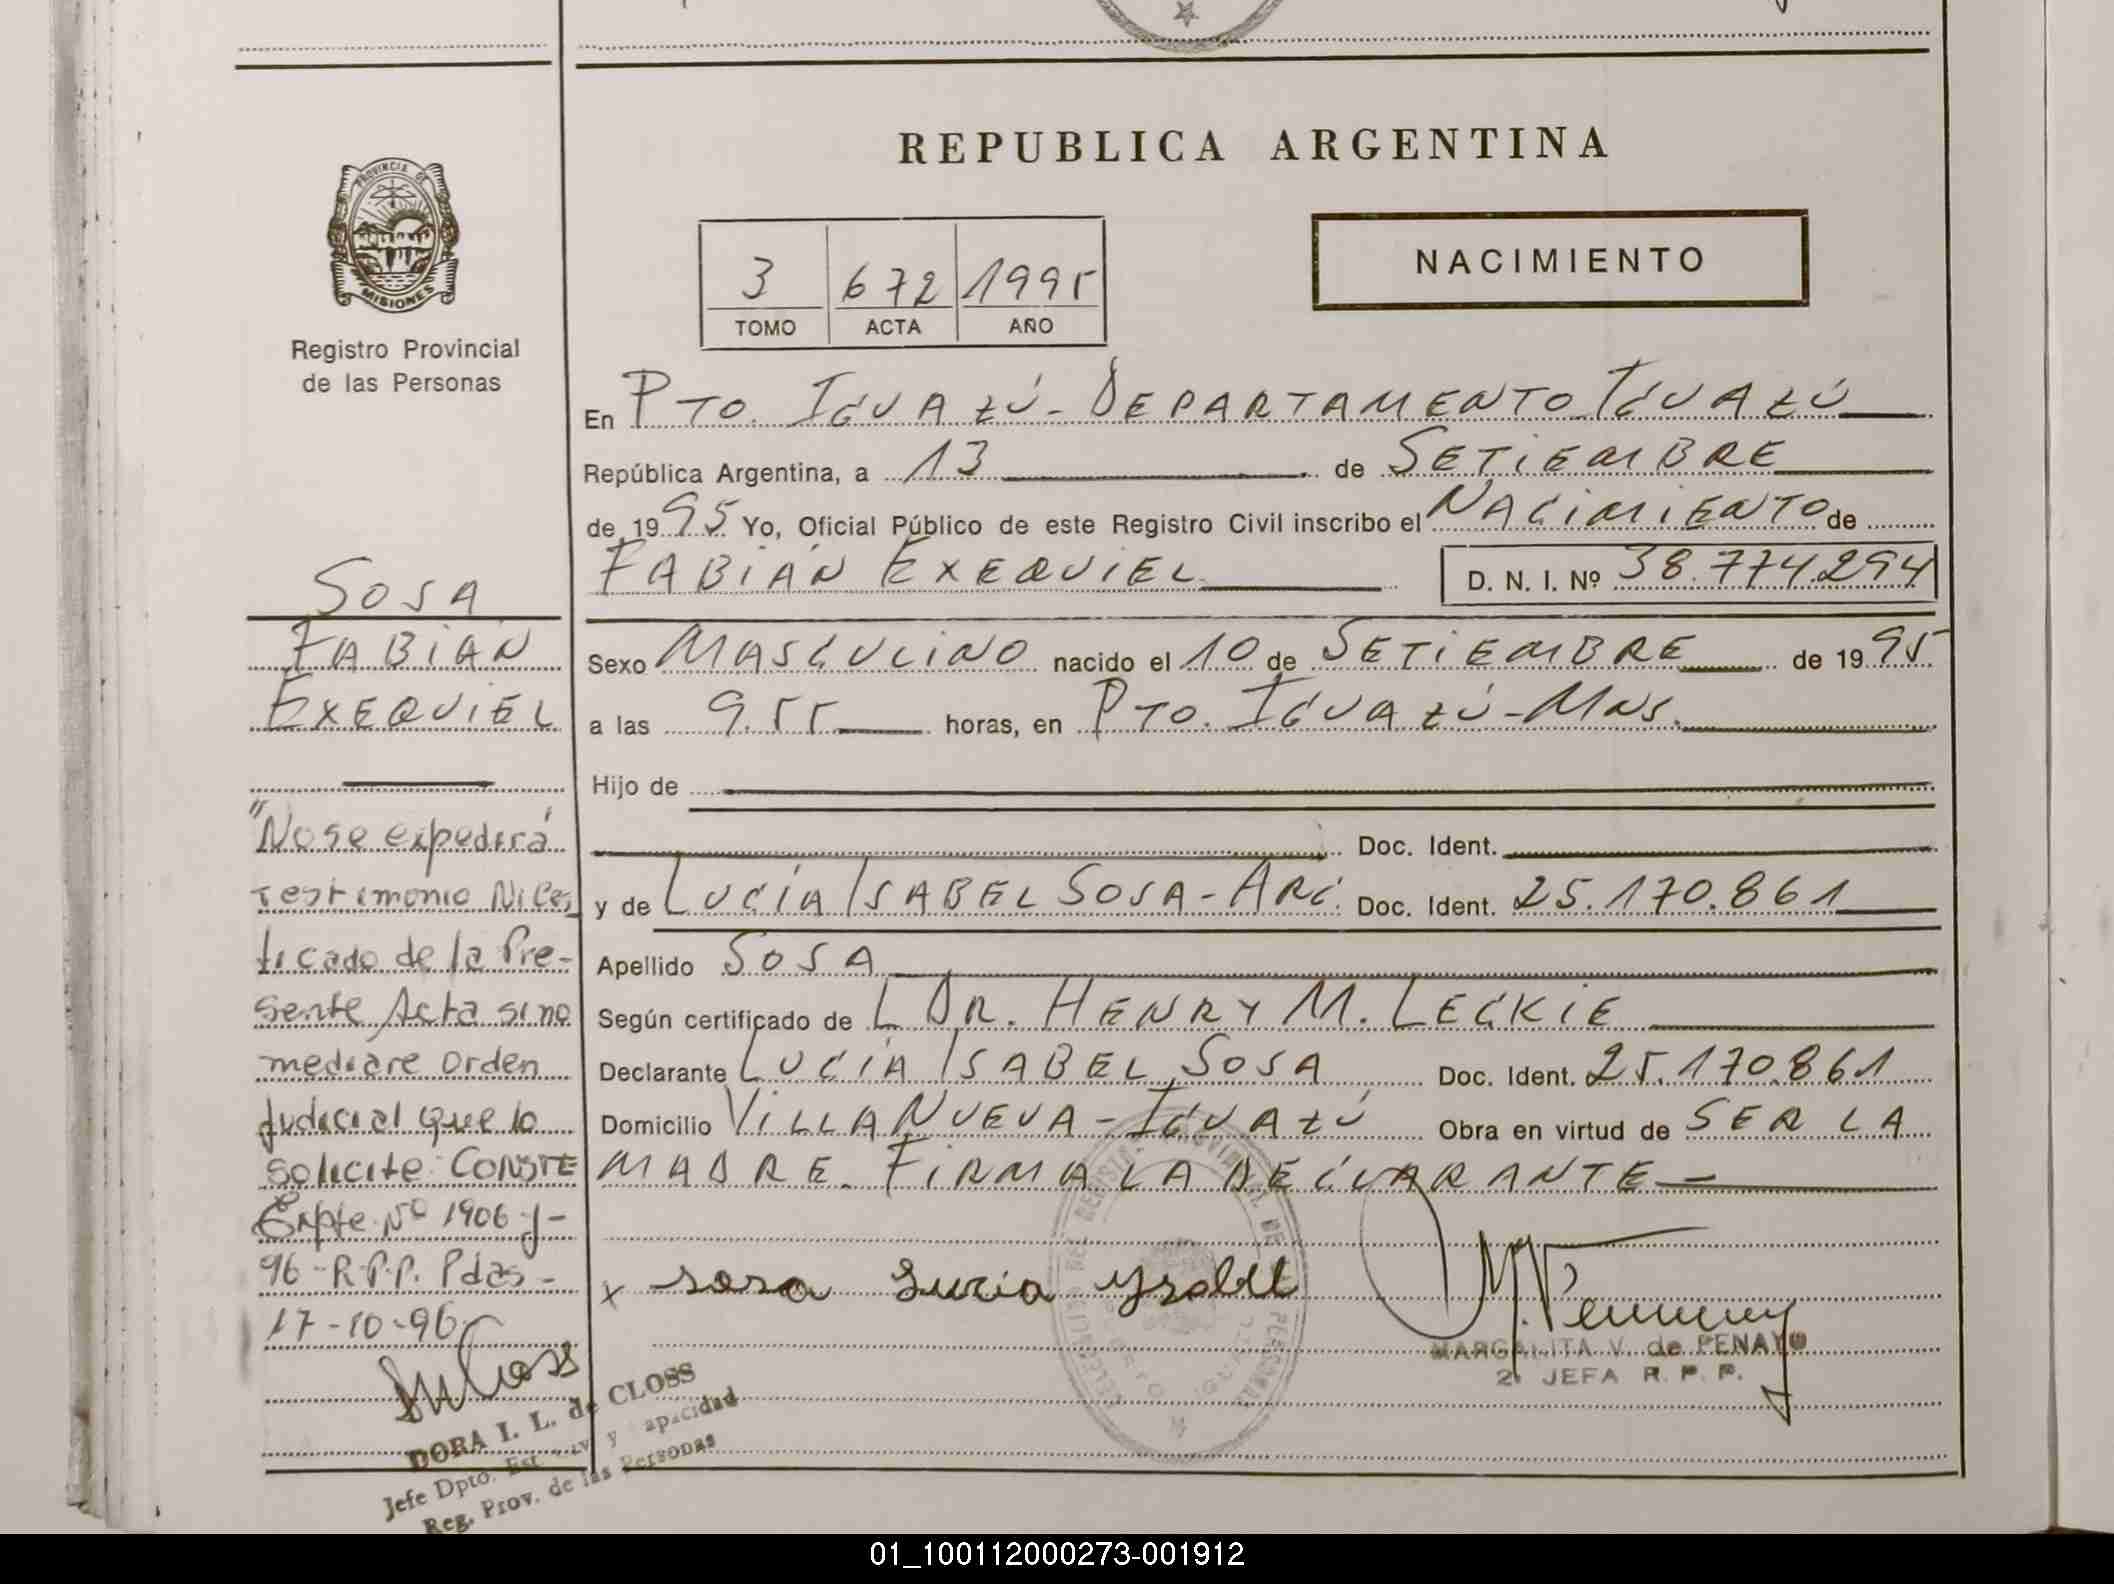 REPUBLICA ARGENTINA
PROVINCIA DE
MISIONES
Registro Provincial
de las Personas
NACIMIENTO
3 672 1995
TOMO ACTA AÑO
En PTO. IGUAZÚ - DEPARTAMENTO IGUAZÚ
República Argentina, a 13 de SETIEMBRE
de 1995 Yo, Oficial Público de este Registro Civil inscribo el NACIMIENTO de
FABIÁN EXEQUIEL D. N. I. Nº 38.774.294
Sexo MASCULINO nacido el 10 de SETIEMBRE de 1995
a las 9.55 horas, en PTO. IGUAZÚ - MNS.
Hijo de
Doc. Ident.
y de LUCÍA ISABEL SOSA - ARG. Doc. Ident. 25.170.861
Apellido SOSA
Según certificado de L DR. HENRY M. LECKIE
Declarante LUCÍA ISABEL SOSA Doc. Ident. 25.170.861
Domicilio VILLA NUEVA - IGUAZÚ Obra en virtud de SER LA
MADRE. FIRMA LA DECLARANTE
x Sosa Lucia Ysabel
MARGALITA V. de PENAYO
2ª JEFA R. P. P.
SOSA
FABIÁN
EXEQUIEL
"No se expedirá
testimonio Ni Cer
tificado de la Pre-
sente Acta si no
mediare orden
Judicial que lo
solicite. CONSTE
Expte. Nº 1906-J-
96-R.P.P. Pdas-
17-10-96
DORA I. L. de CLOSS
Jefe Dpto. Est. Civ. y Capacidad
Reg. Prov. de las Personas
01_100112000273-001912